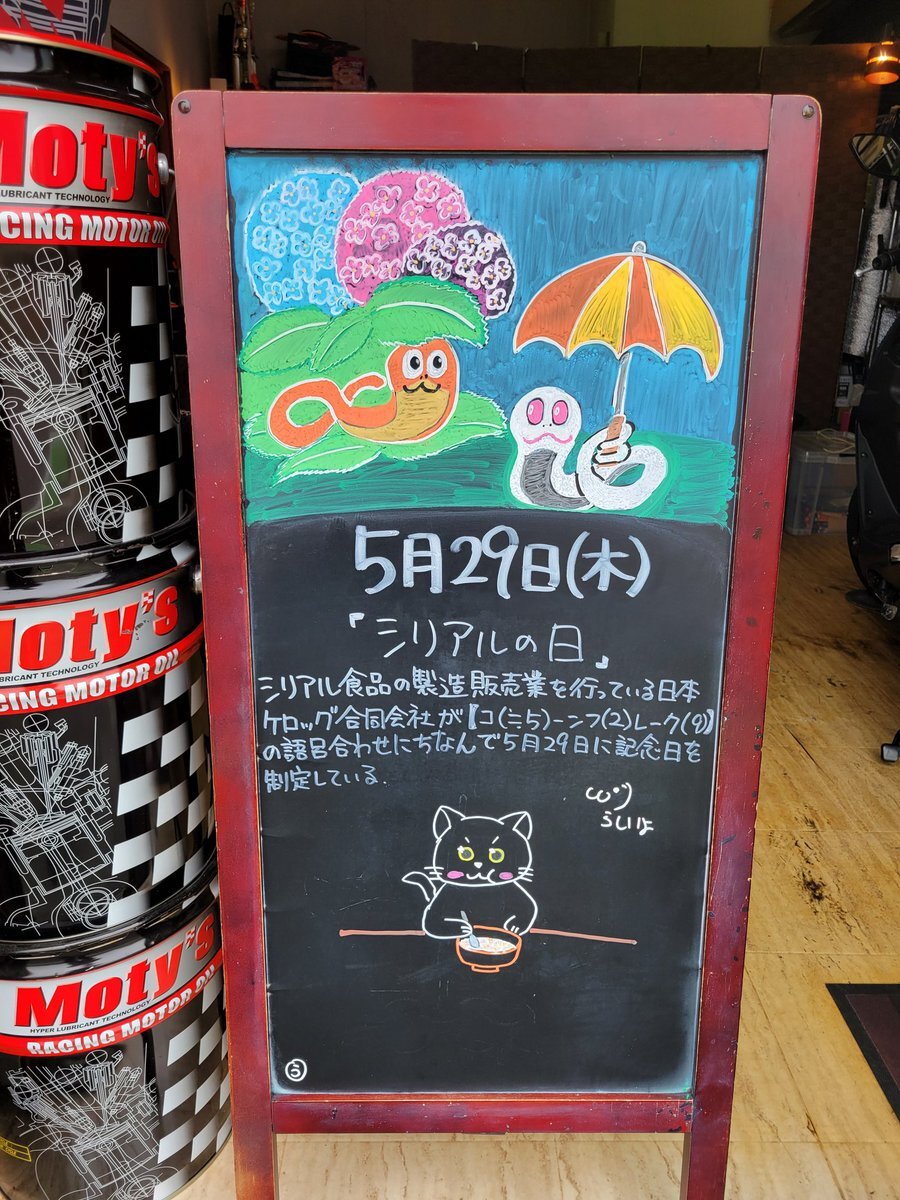 Moty's
LUBRICANT TECHNOLOGY
RACING MOTOR OIL
Moty's
LUBRICANT TECHNOLOGY
RACING MOTOR OIL
Moty's
HYPER LUBRICANT TECHNOLOGY
RACING MOTOR OIL
5月29日(木)
『シリアルの日』
シリアル食品の製造販売業を行っている日本
ケロッグ合同会社が【コ(=5)ーンフ(2)レーク(9)】
の語呂合わせにちなんで5月29日に記念日を
制定している.
らしいよ
う